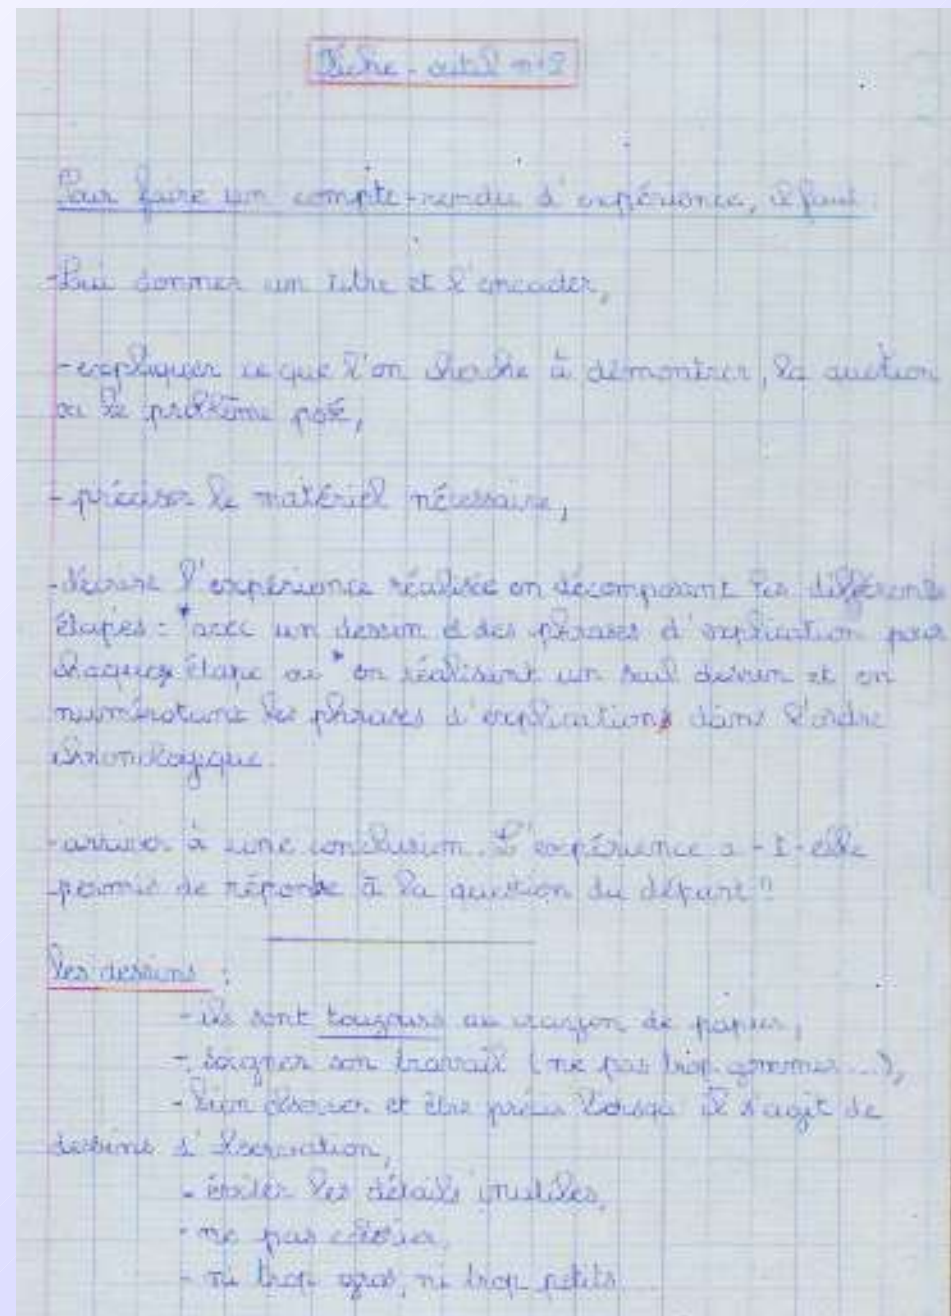 Fiche-outil n°2
Pour faire un compte-rendu d'expérience, il faut :
-Lui donner un titre et l'encadrer,
-expliquer ce que l'on cherche à démontrer, la question
ou le problème posé,
- préciser le matériel nécessaire,
-décrire l'expérience réalisée en décomposant les différents
étapes : *avec un dessin et des phrases d'explication pour
chaque étape ou * en réalisant un seul dessin et en
numérotant les phrases d'explications dans l'ordre
chronologique.
-arriver à une conclusion. L'expérience a-t-elle
permis de répondre à la question du départ ?
les dessins :
-ils sont toujours au crayon de papier,
- soigner son travail (ne pas trop gommer...),
- bien observer et être précis lorsqu'il s'agit de
dessins d'observation,
- éviter les détails inutiles,
- ne pas colorier,
- ni trop gros, ni trop petits